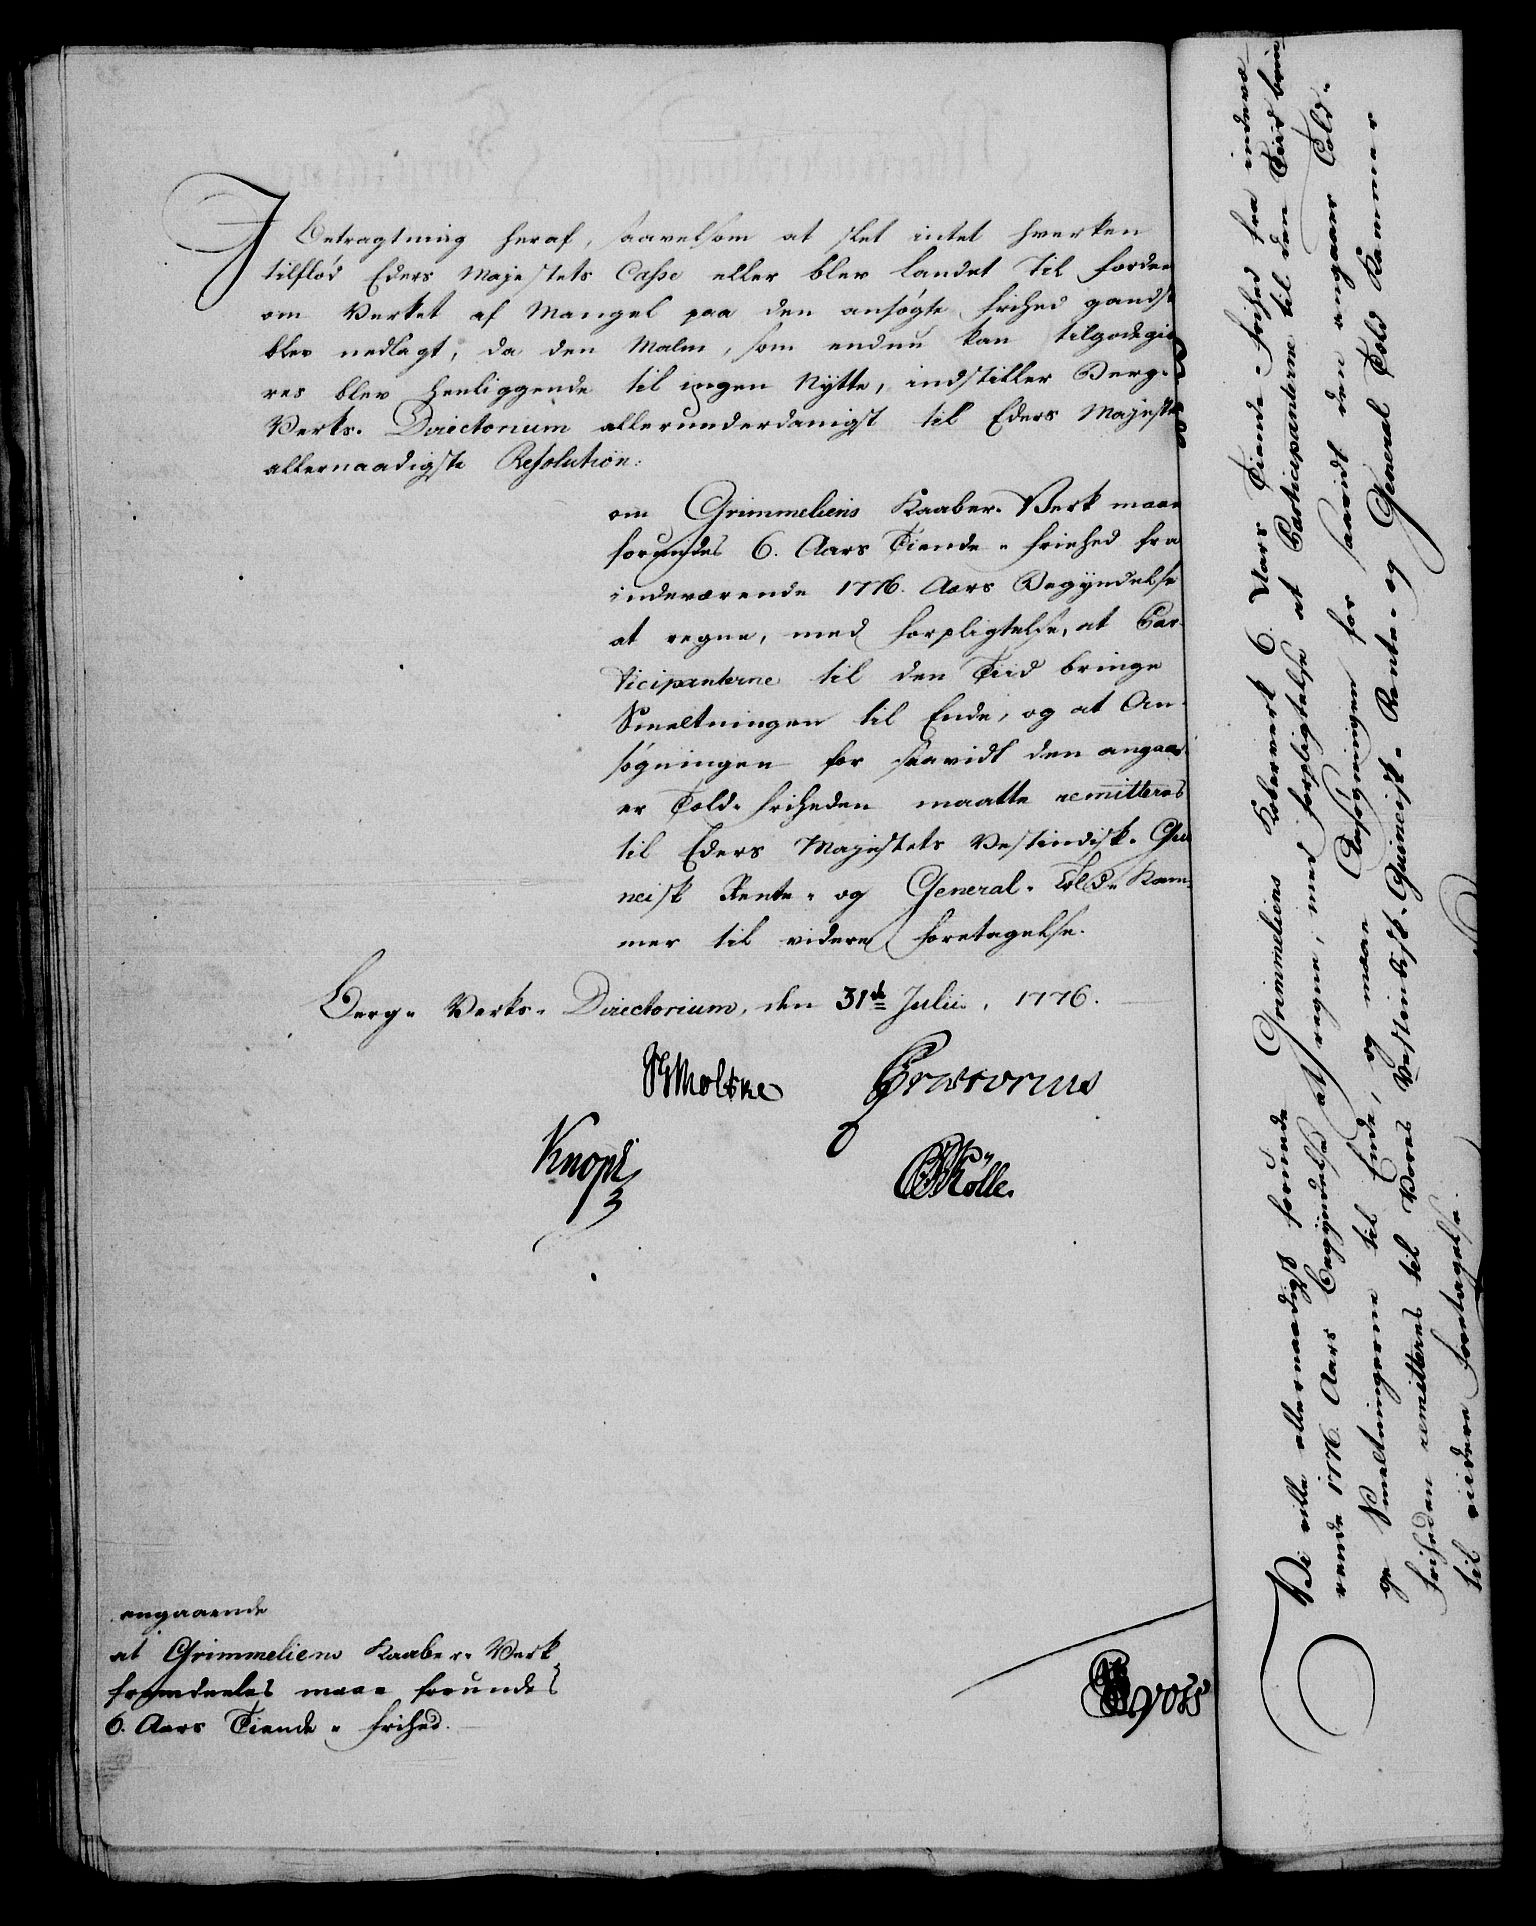 I Betragtning heraf, saavelsom at slet intet hverken
tilflød Eders Majestets Casse eller blev landet til fordeel
om Verket af Mangel paa den ansøgte frihed gandske
blev nedlagt, da den Malm, som endnu kan tilgodegiø
res blev henliggende til ingen Nytte, indstiller Berg-
Verks- Directorium allerunderdanigst til Eders Majestets
allernaadigste Resolution:
om Grimmeliens Kaaber-Verk maae
forundes 6. Aars Tiende-friehed fra
indeværende 1776. Aars Begyndelse
at regne, med forpligtelse, at Par-
ticipanterne til den Tiid bringe
Smeltningen til Ende, og at An-
søgningen for saavidt den angaa-
er Told-friheden maatte remitteres
til Eders Majestets Vestindisk-Gui
neisk Rente- og General-Told-Kam-
mer til videre foretagelse.
Berg- Verks- Directorium, den 31de Julii, 1776.
Moltke Prætorius
Knoph
Kölle.
angaaende
at Grimmeliens Kaaber-Verk
fremdeeles maae forundes
6. Aars Tiende-frihed.
Vi ville allernaadigst forunde Grimmeliens Kobberverk 6. Aars Tiende-frihed fra indevæ-
rende 1776. Aars Begyndelse at regne, med forpligtelse at Participanterne til den Tiid brin-
ge Smeltningerne til Ende, og maae Ansøgningen for saavidt den angaaer Told-
friheden remitteres til Vores Vestindisk-Guineisk-Rente- og General Told Kammer
til viidere foretagelse.